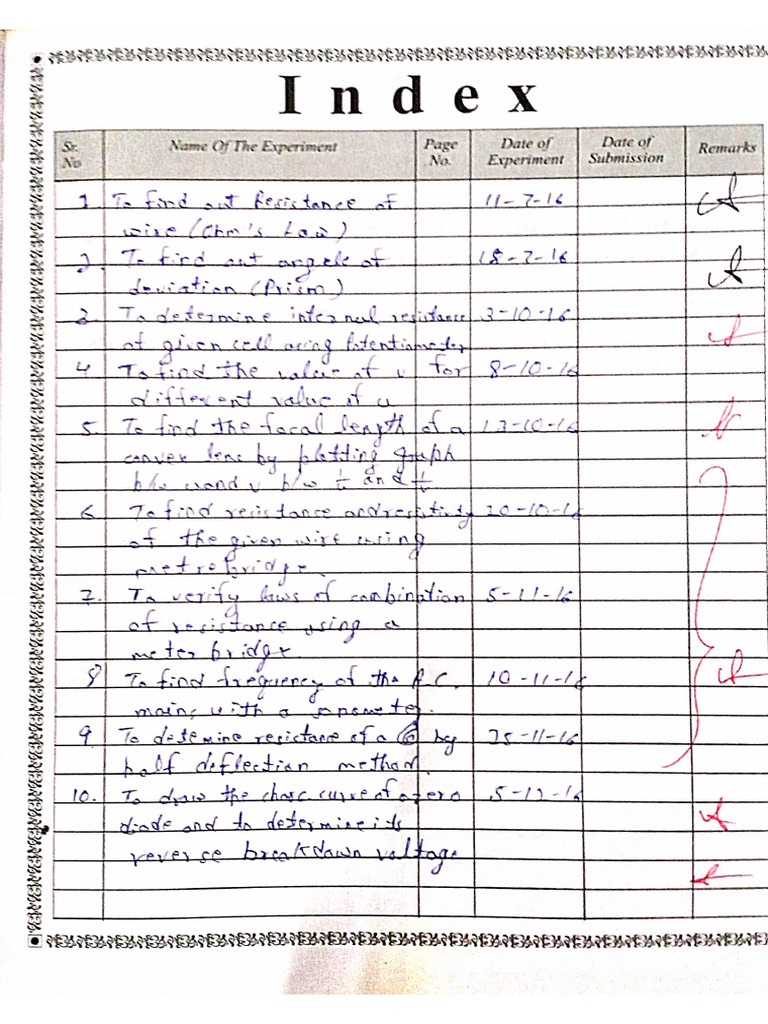 Index
Sr. No Name Of The Experiment Page No. Date of Experiment Date of Submission Remarks
1. To find out Resistance of 11-7-16
wire (Ohm's Law)
2. To find out angele of 18-7-16
deviation (Prism)
3. To determine internal resistance 3-10-16
of given cell using Potentiometer
4 To find the value of v for 8-10-16
different value of u
5. To find the focal length of a 13-10-16
convex lens by plotting graph
b/w u and v b/w 1/u and 1/v
6 To find resistance and resistivity 20-10-16
of the given wire using
metre bridge.
7. To verify laws of combination 5-11-16
of resistance using a
meter bridge.
8 To find frequency of the A.C. 10-11-16
mains with a sonometer.
9 To detemine resistance of a G by 25-11-16
half deflection method.
10. To draw the charc curve of a zero 5-12-16
diode and to determine its
reverse breakdown voltage